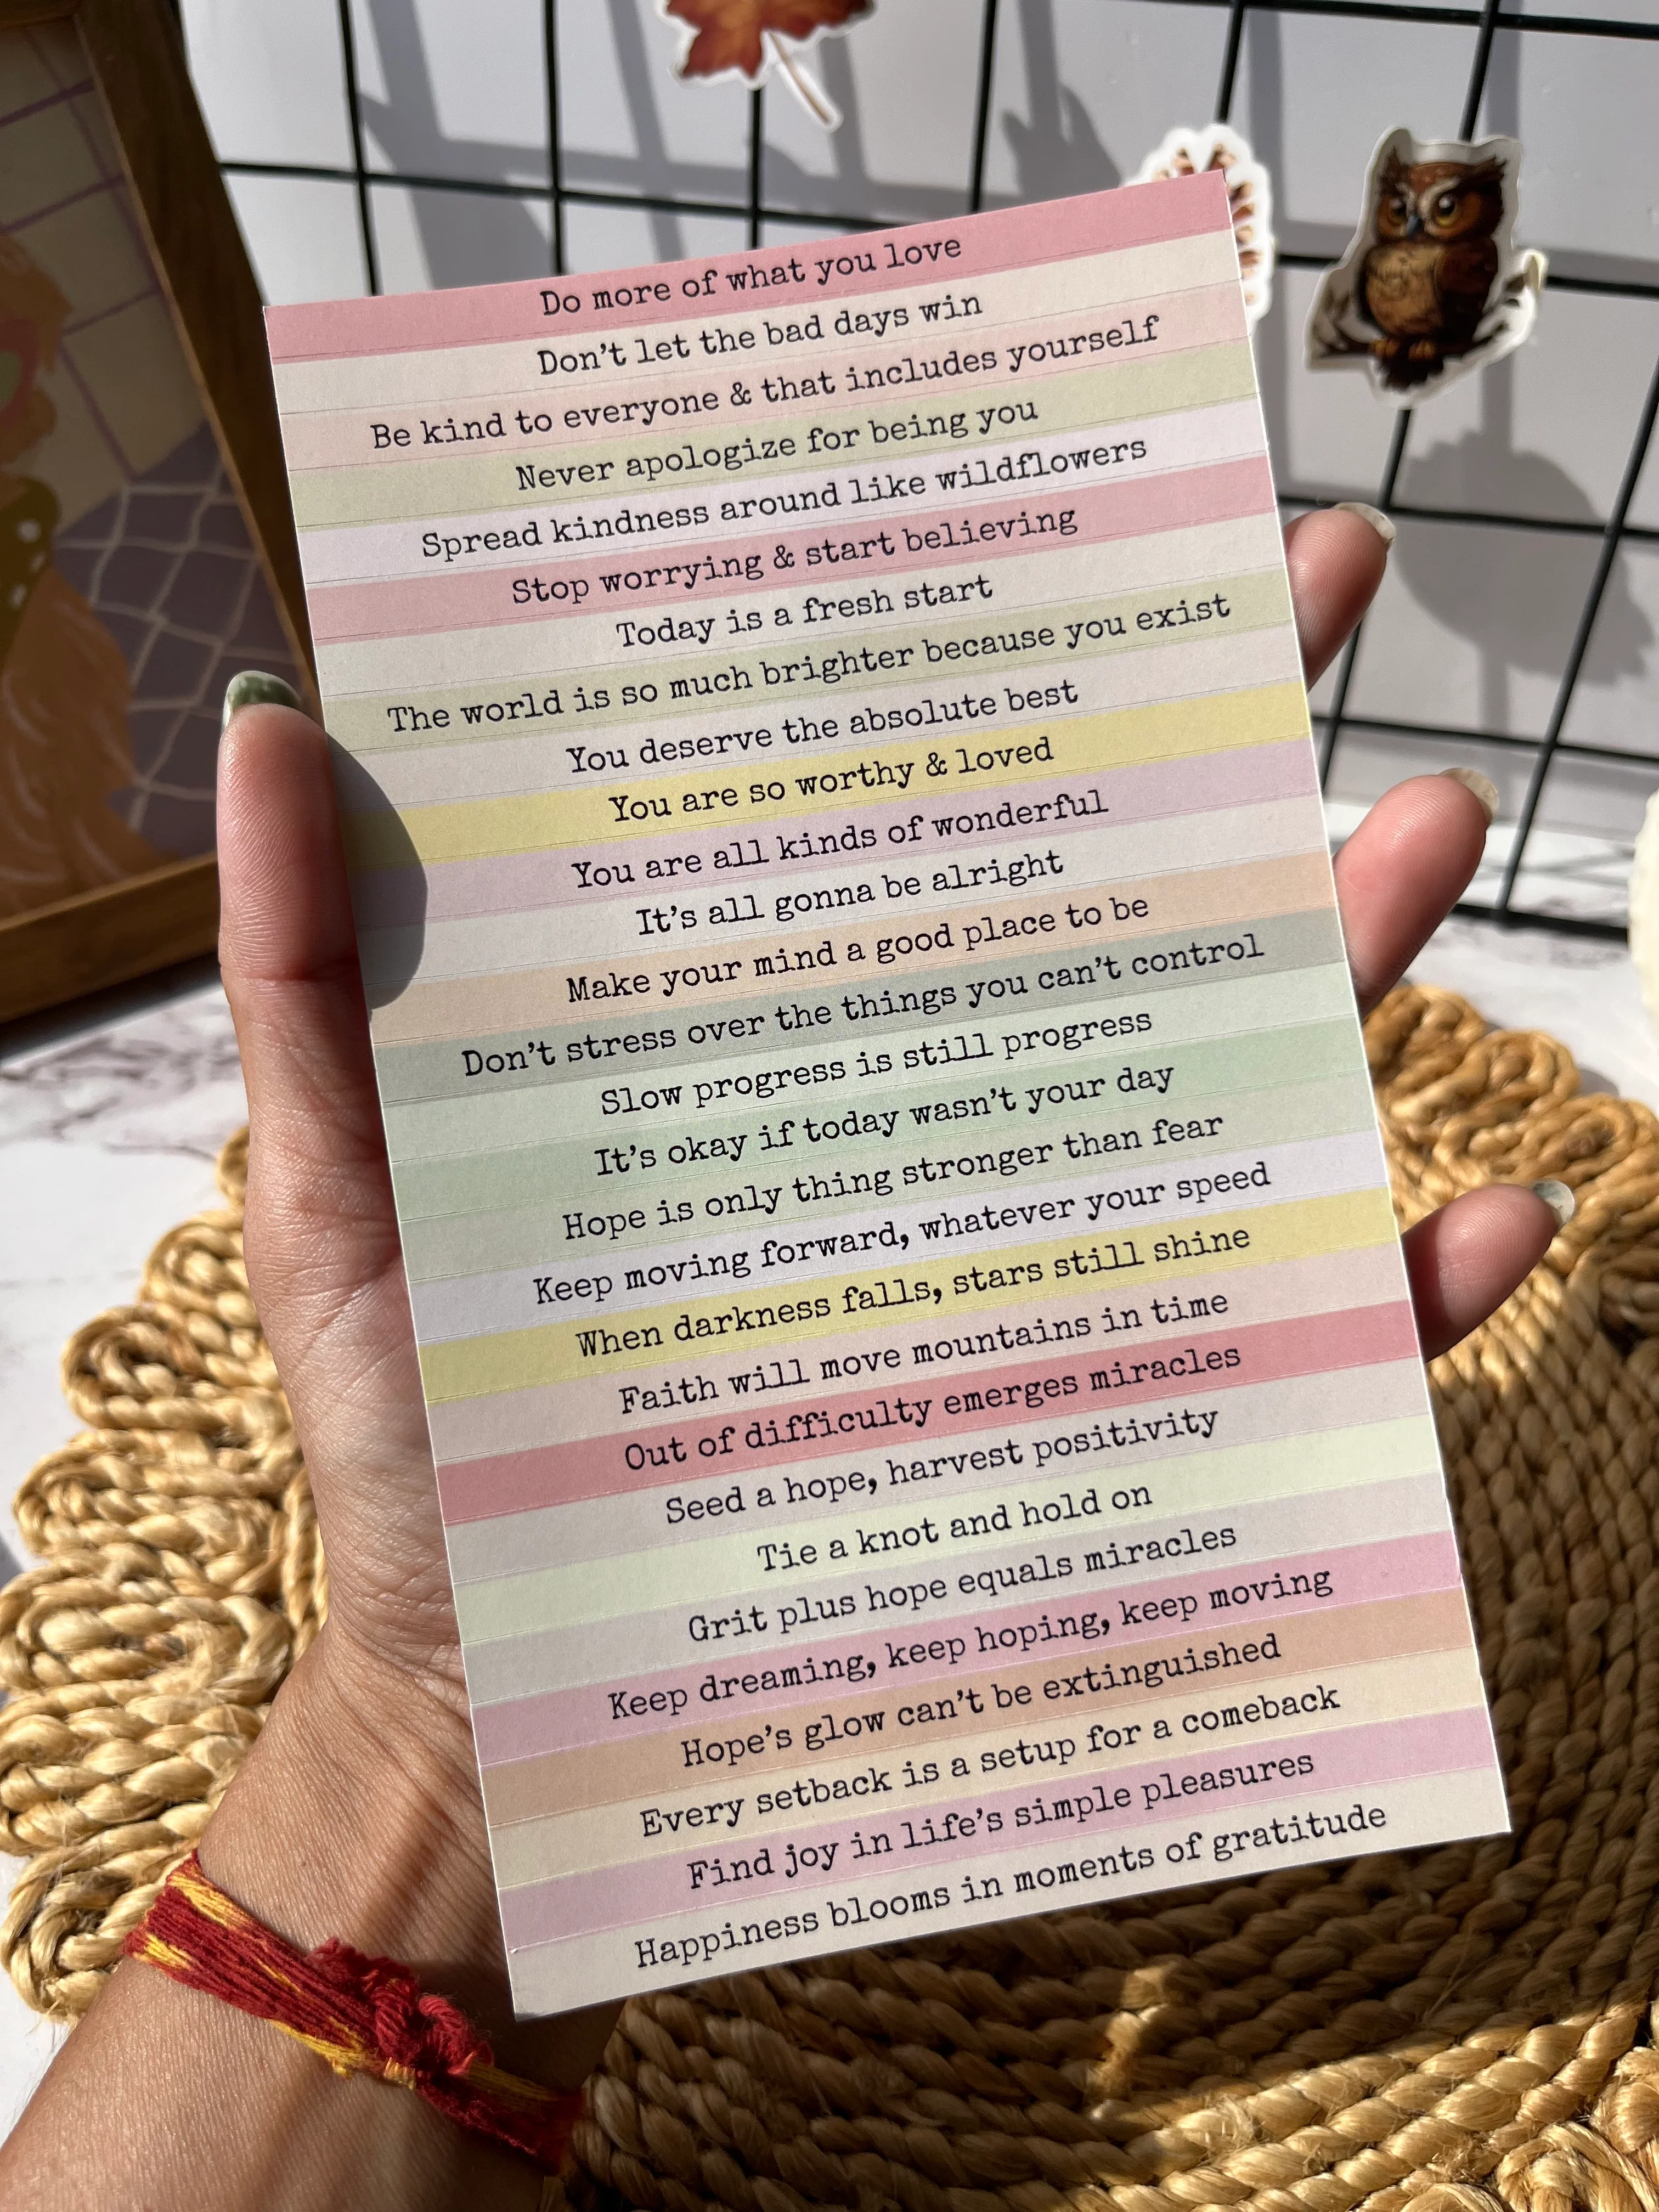 Do more of what you love
Don't let the bad days win
Be kind to everyone & that includes yourself
Never apologize for being you
Spread kindness around like wildflowers
Stop worrying & start believing
Today is a fresh start
The world is so much brighter because you exist
You deserve the absolute best
You are so worthy & loved
You are all kinds of wonderful
It's all gonna be alright
Make your mind a good place to be
Don't stress over the things you can't control
Slow progress is still progress
It's okay if today wasn't your day
Hope is only thing stronger than fear
Keep moving forward, whatever your speed
When darkness falls, stars still shine
Faith will move mountains in time
Out of difficulty emerges miracles
Seed a hope, harvest positivity
Tie a knot and hold on
Grit plus hope equals miracles
Keep dreaming, keep hoping, keep moving
Hope's glow can't be extinguished
Every setback is a setup for a comeback
Find joy in life's simple pleasures
Happiness blooms in moments of gratitude